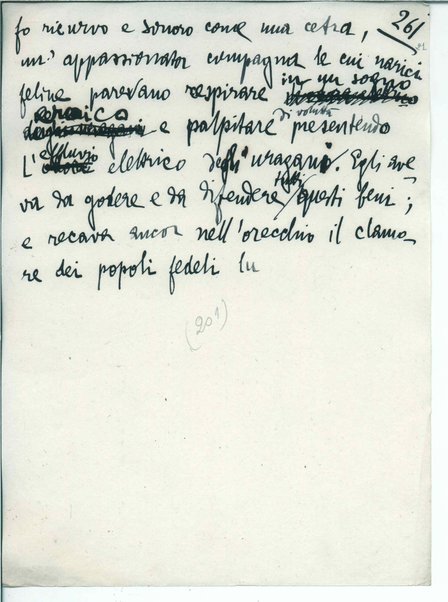 261
fo ricurvo e sonoro come una cetra,
un' appassionata compagna le cui narici
feline parevano respirare in un sogno
eroico e palpitare di voluttà presentendo
l'effluvio elettrico degli uragani. Egli ave-
va da godere e da difendere tutti questi beni;
e recava ancor nell'orecchio il clamo-
re dei popoli fedeli lu
(201)